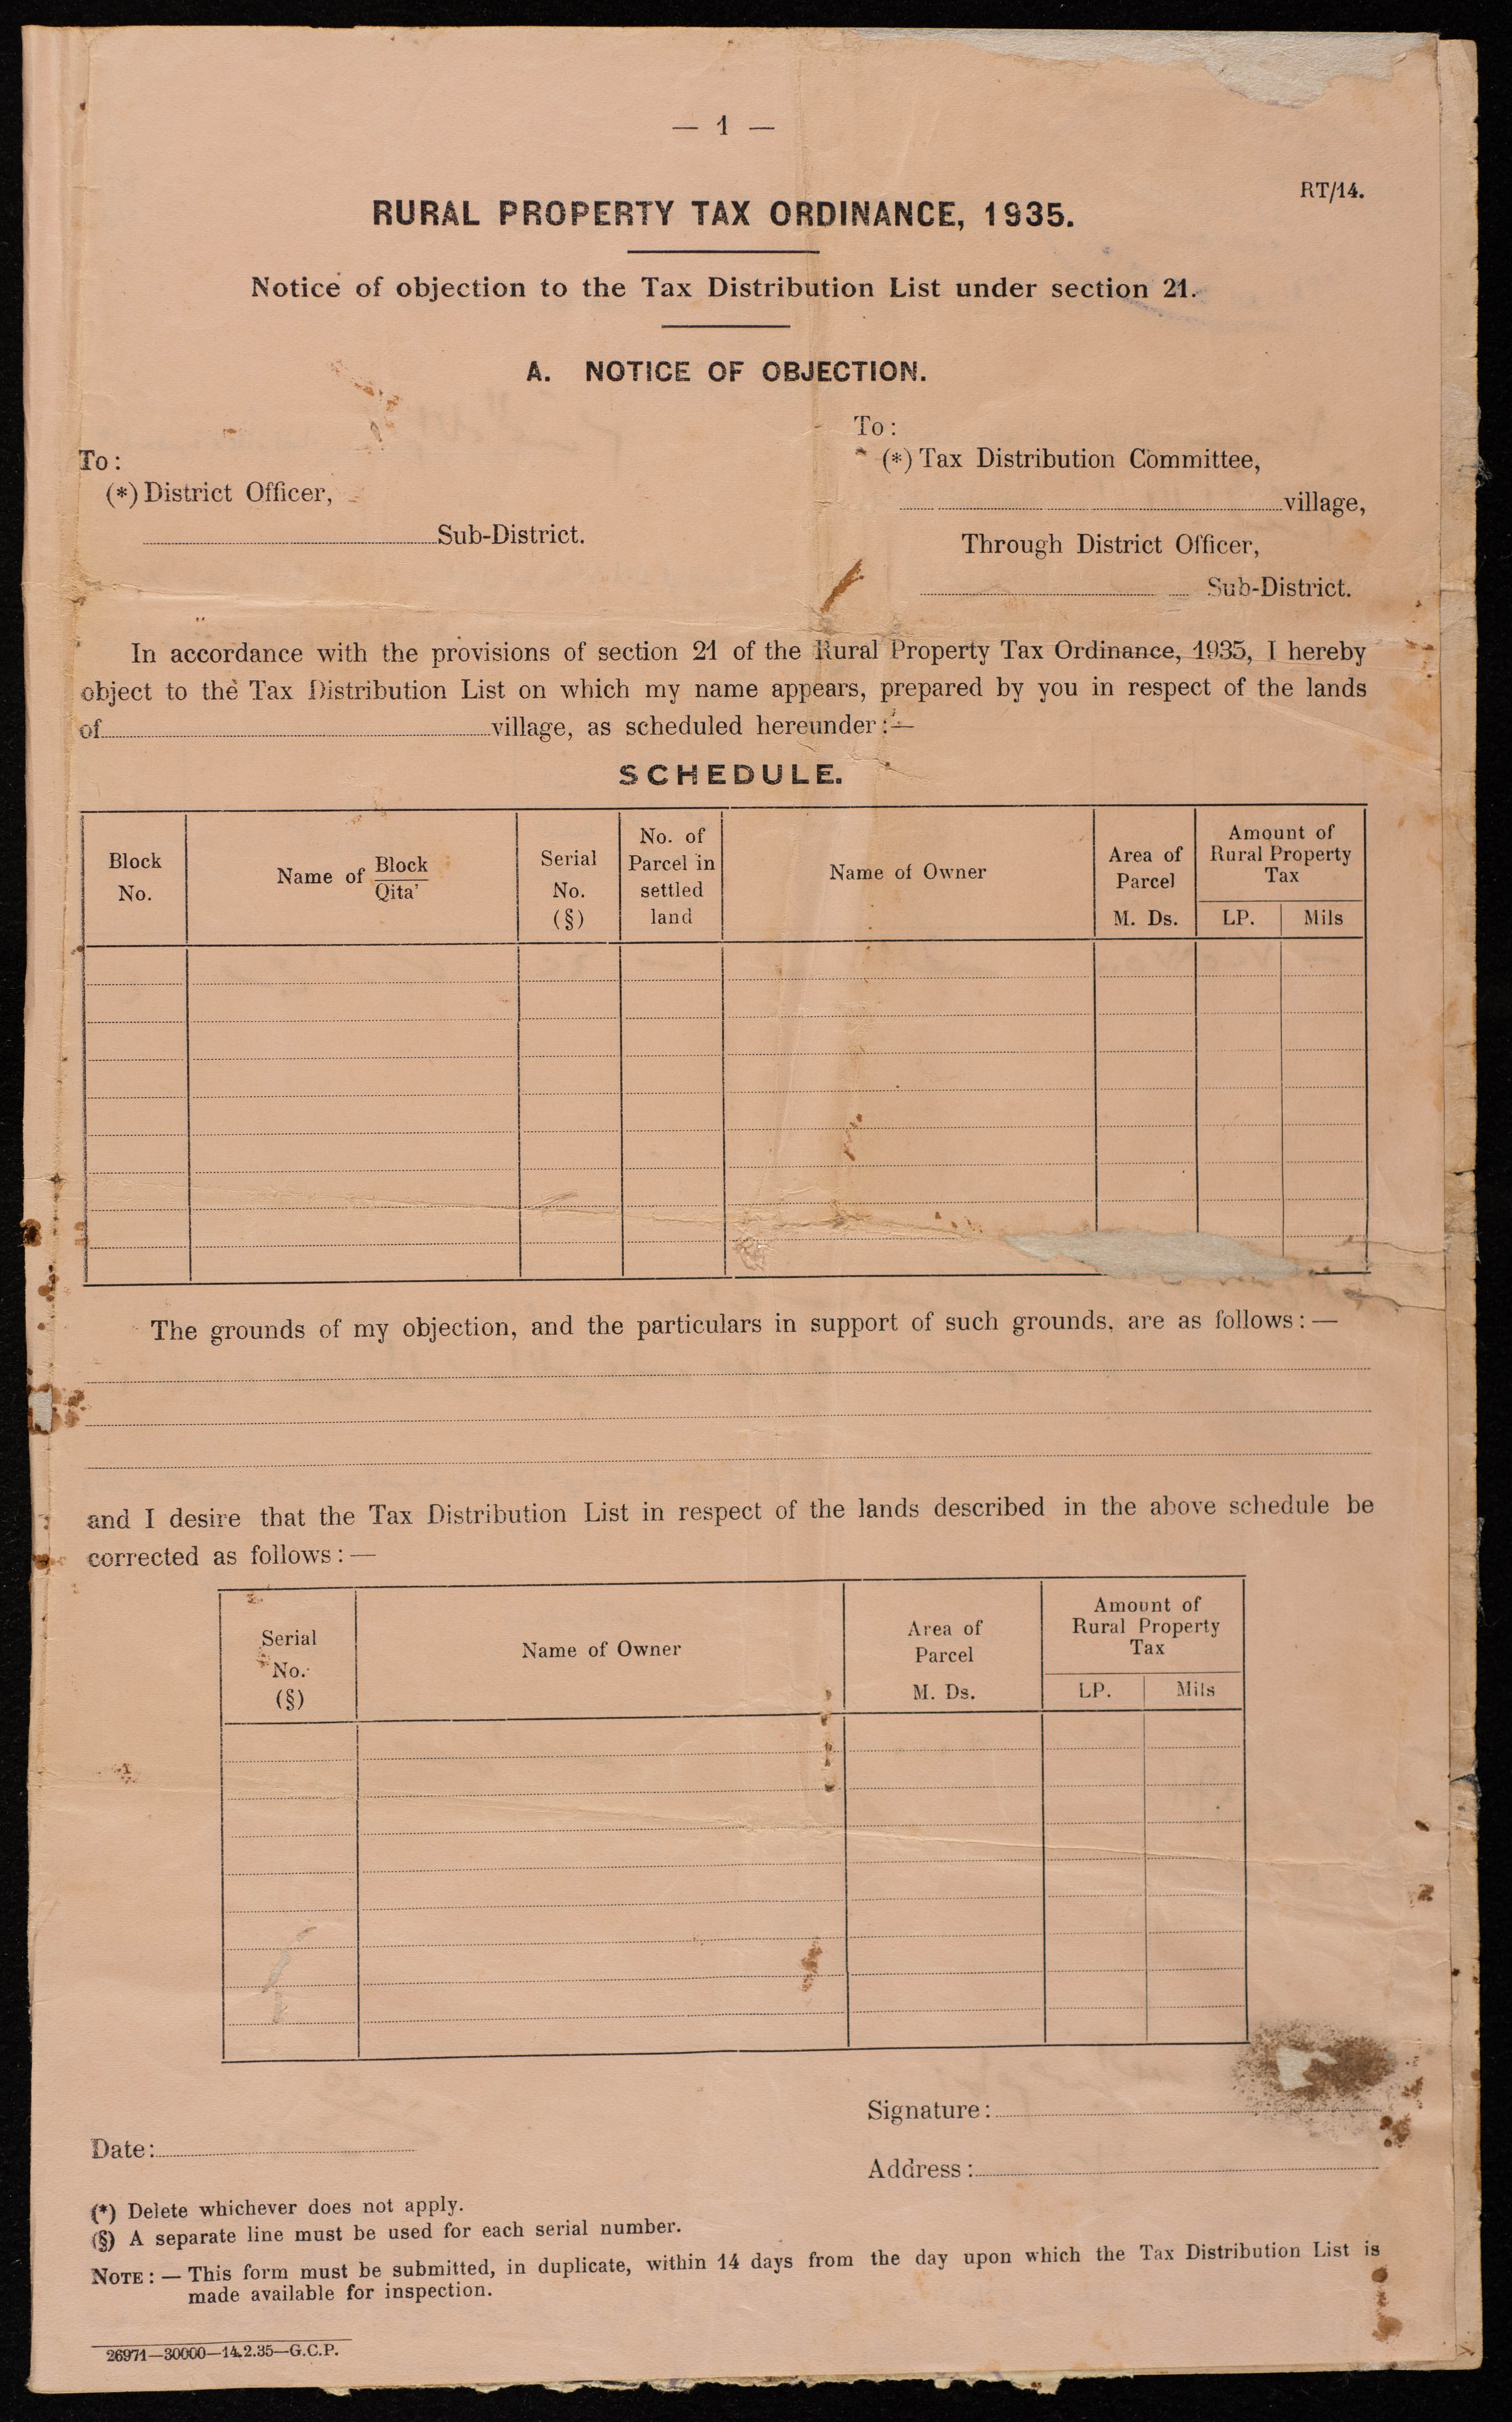 — 1 —
RT/14.
RURAL PROPERTY TAX ORDINANCE, 1935.
Notice of objection to the Tax Distribution List under section 21.
A. NOTICE OF OBJECTION.
To:
(*) District Officer,
Sub-District.
To:
(*) Tax Distribution Committee,
village,
Through District Officer,
Sub-District.
In accordance with the provisions of section 21 of the Rural Property Tax Ordinance, 1935, I hereby
object to the Tax Distribution List on which my name appears, prepared by you in respect of the lands
of village, as scheduled hereunder:—
SCHEDULE.
Block No.
Name of Block/Qita'
Serial No. (§)
No. of Parcel in settled land
Name of Owner
Area of Parcel M. Ds.
Amount of Rural Property Tax
LP. Mils
The grounds of my objection, and the particulars in support of such grounds, are as follows:—
and I desire that the Tax Distribution List in respect of the lands described in the above schedule be
corrected as follows:—
Serial No. (§)
Name of Owner
Area of Parcel M. Ds.
Amount of Rural Property Tax
LP. Mils
Signature:
Date:
Address:
(*) Delete whichever does not apply.
(§) A separate line must be used for each serial number.
NOTE:— This form must be submitted, in duplicate, within 14 days from the day upon which the Tax Distribution List is
made available for inspection.
26971—30000—14.2.35—G.C.P.